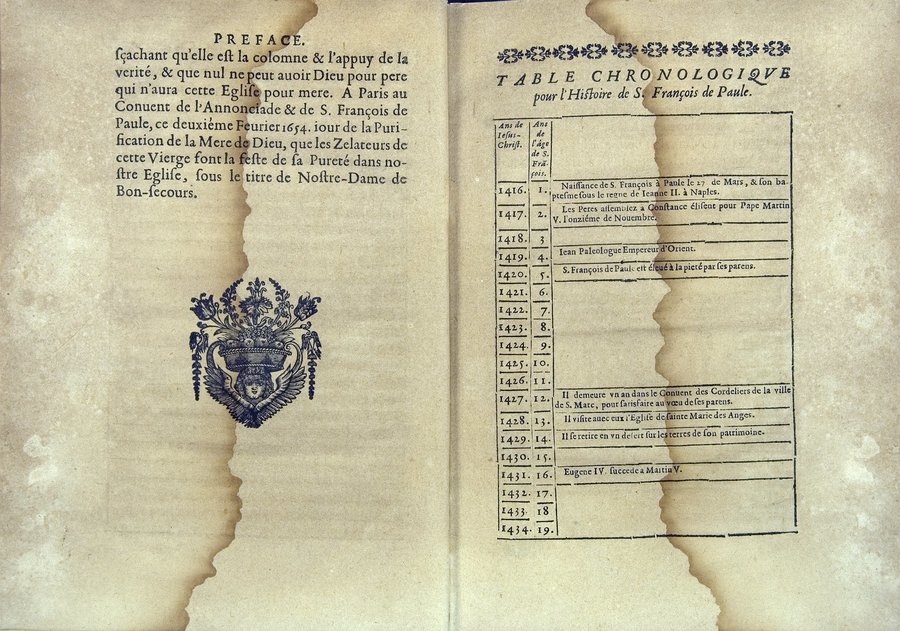 PREFACE.
sçachant qu'elle est la colomne & l'appuy de la
verité, & que nul ne peut auoir Dieu pour pere
qui n'aura cette Eglise pour mere. A Paris au
Conuent de l'Annonciade & de S. François de
Paule, ce deuxiéme Feurier 1654. iour de la Puri-
fication de la Mere de Dieu, que les Zelateurs de
cette Vierge font la feste de sa Pureté dans no-
stre Eglise, sous le titre de Nostre-Dame de
Bon-secours.
TABLE CHRONOLOGIQVE
pour l'Histoire de S. François de Paule.
Ans de Iesus-Christ.
Ans de l'âge de S. Frãçois.
1416. 1. Naissance de S. François à Paule le 27 de Mars, & son ba-
ptesme sous le regne de Ieanne II. à Naples.
1417. 2. Les Peres assemblez à Constance élisent pour Pape Martin
V. l'onziéme de Nouembre.
1418. 3
1419. 4. Iean Paleologue Empereur d'Orient.
1420. 5. S. François de Paule est éleué à la pieté par ses parens.
1421. 6.
1422. 7.
1423. 8.
1424. 9.
1425. 10.
1426. 11.
1427. 12. Il demeure vn an dans le Conuent des Cordeliers de la ville
de S. Marc, pour satisfaire au vœu de ses parens.
1428. 13. Il visite auec eux l'Eglise de sainte Marie des Anges.
1429. 14. Il se retire en vn desert sur les terres de son patrimoine.
1430. 15.
1431. 16. Eugene IV. succede a Martin V.
1432. 17.
1433. 18
1434. 19.